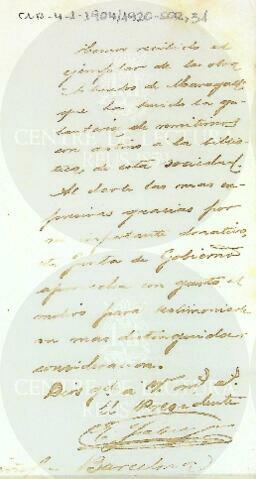 CLR-4-1-1904/1920-SCR, 31
Hemos recibido el
ejemplar de la obra
de Maragall
que ha tenido la ga-
lantería de remitirnos
con destino á la biblio-
teca de esta sociedad.
Al darle las mas ex-
presivas gracias por
su importante donativo,
la Junta de Gobierno
aprovecha con gusto el
motivo para testimoniarle
su mas distinguida
consideracion.
Dios gᵉ a V. mˢ aˢ
El Presidente
Barcelona
CENTRE DE LECTURA
REUS